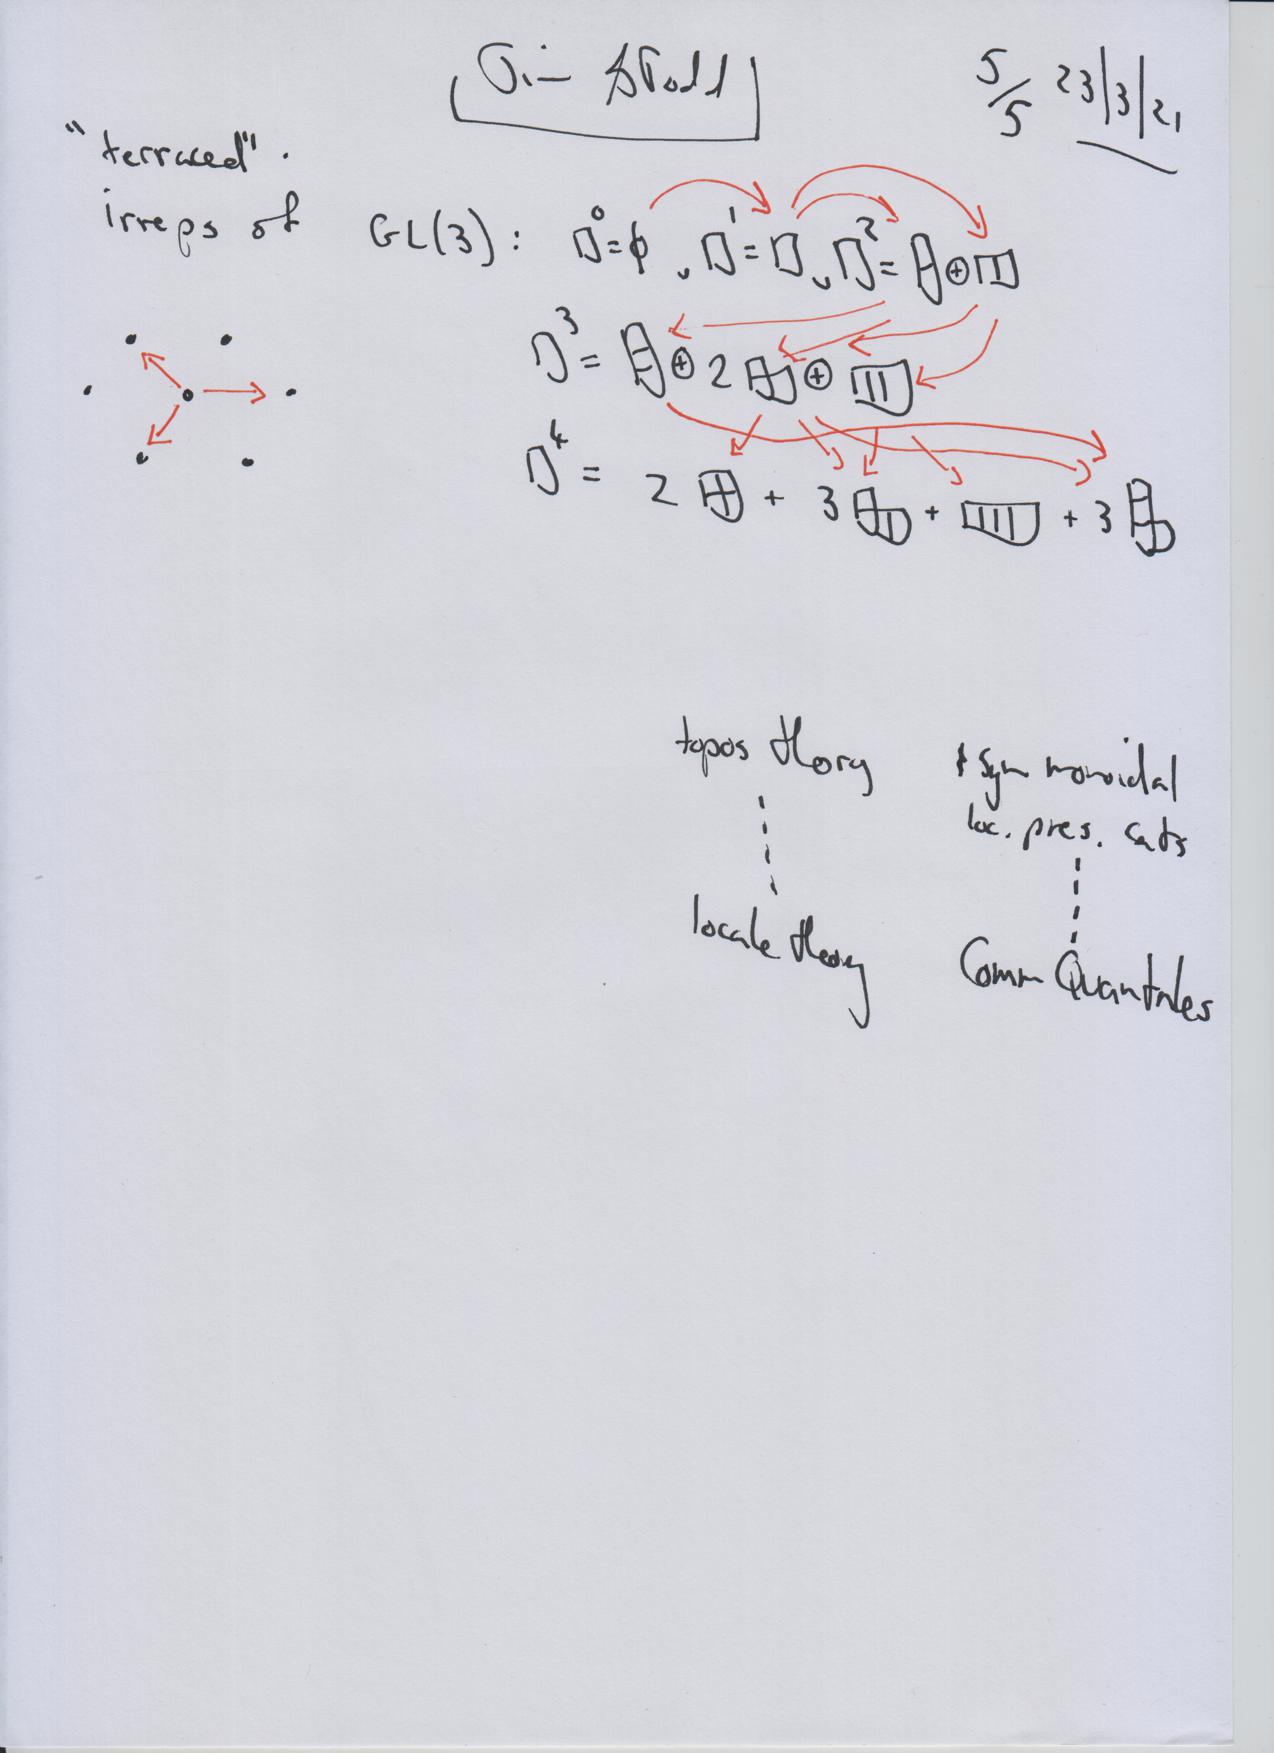 5/5 23/3/21
"terraced".
irreps of GL(3): □⁰=ϕ, □¹=□, □²= ⊕
□³= ⊕ 2 ⊕
□⁴ = 2 + 3 + + 3
topos theory
locale theory
* Sym monoidal
loc. pres. cats
Comm Quantales